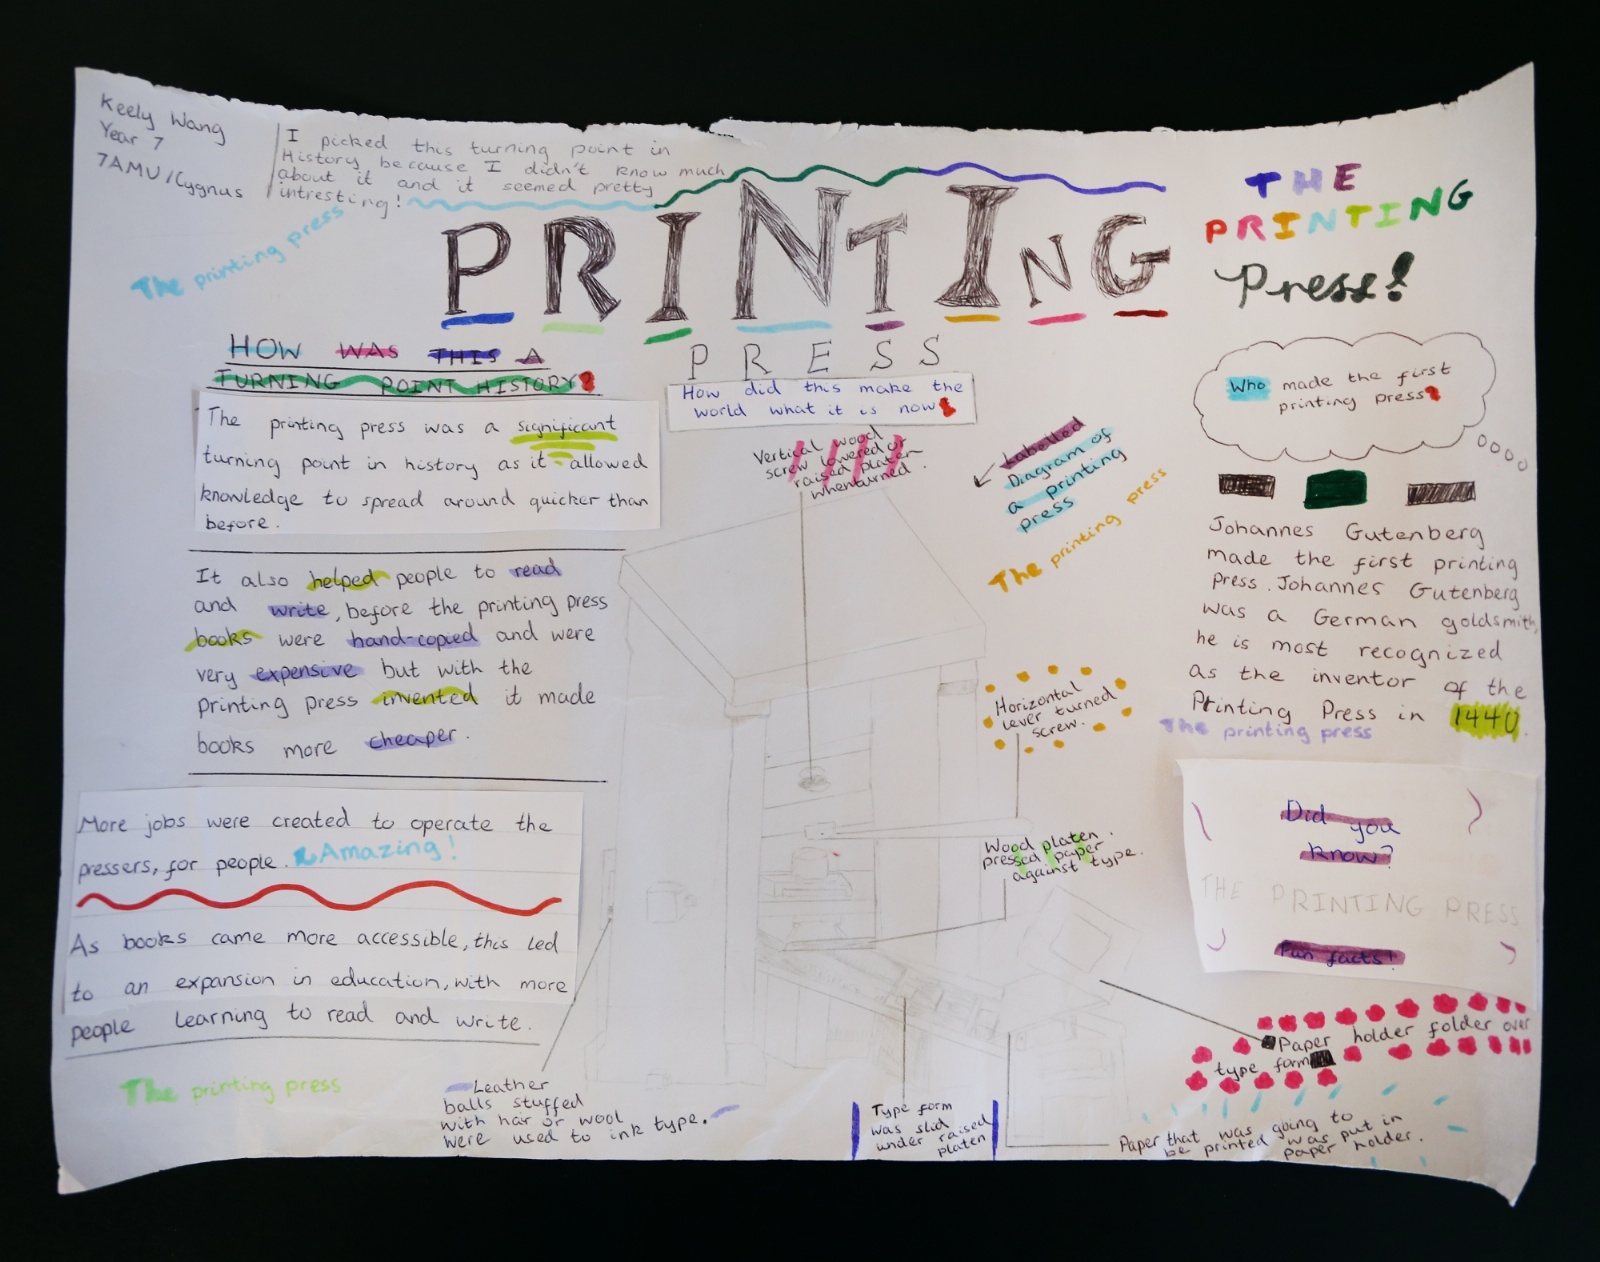 Keely Wang
Year 7
7AMU/Cygnus
I picked this turning point in
History because I didn't know much
about it and it seemed pretty
intresting!
The printing press
PRINTING
PRESS
THE
PRINTING
Press!
HOW WAS THIS A
TURNING POINT HISTORY?
The printing press was a significant
turning point in history as it allowed
knowledge to spread around quicker than
before.
It also helped people to read
and write, before the printing press
books were hand-copied and were
very expensive but with the
printing press invented it made
books more cheaper.
More jobs were created to operate the
pressers, for people. Amazing!
As books came more accessible, this led
to an expansion in education, with more
people learning to read and write.
The printing press
How did this make the
world what it is now?
Vertical wood
screw lowered or
raised platen
when turned.
Labelled
Diagram of
a printing
press
The printing press
Horizontal
lever turned
screw.
Wood platen
pressed paper
against type.
Leather
balls stuffed
with hair or wool
were used to ink type.
Type form
was slid
under raised
platen
Who made the first
printing press?
Johannes Gutenberg
made the first printing
press. Johannes Gutenberg
was a German goldsmith,
he is most recognized
as the inventor of the
Printing Press in 1440.
The printing press
Did you
know?
THE PRINTING PRESS
Fun facts!
Paper holder folder over
type form
Paper that was going to
be printed was put in
paper holder.